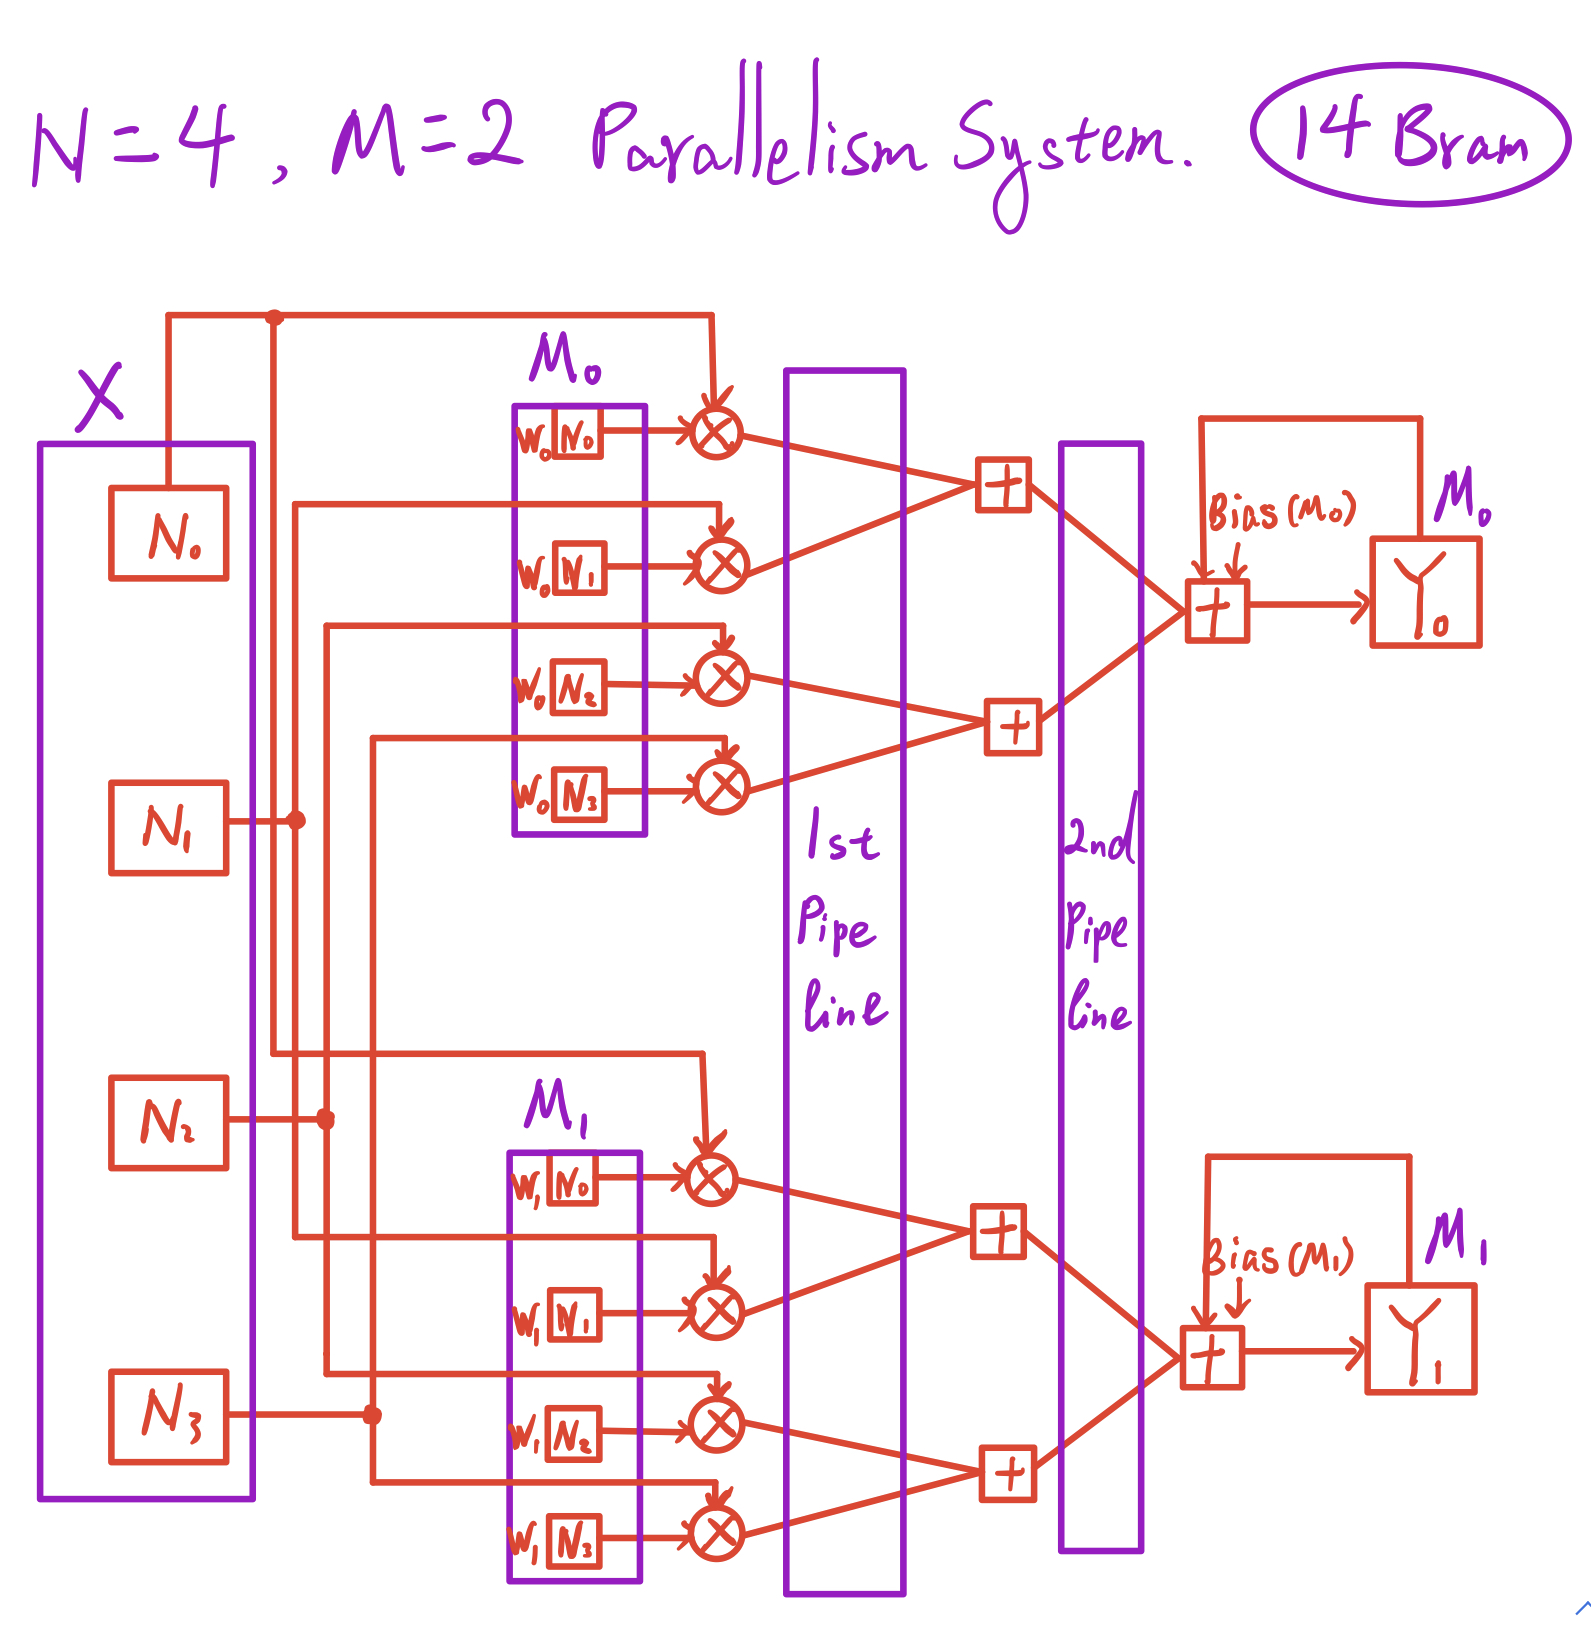 N = 4 , M = 2 Parallelism System.
14 Bram
X
N₀
N₁
N₂
N₃
M₀
W₀ N₀
W₀ N₁
W₀ N₂
W₀ N₃
M₁
W₁ N₀
W₁ N₁
W₁ N₂
W₁ N₃
1st
Pipe
line
2nd
Pipe
line
+
+
+
+
Bias (M₀)
+
M₀
Y₀
Bias (M₁)
+
M₁
Y₁